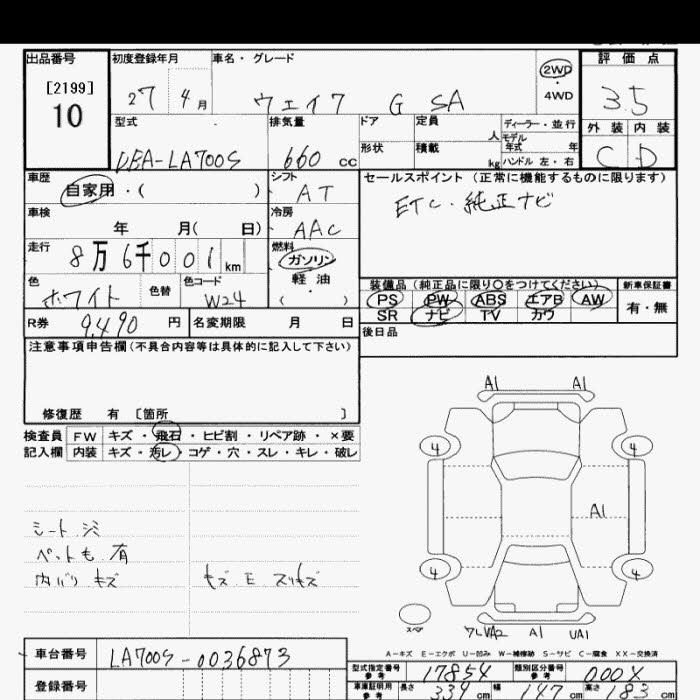 出品番号
[2199]
10
初度登録年月 27 4月
車名・グレード ウェイク G SA
2WD・4WD
評価点
3.5
外装 内装
C D
型式 DBA-LA700S
排気量 660 cc
ドア
定員 人
形状
積載 kg
ディーラー・並行
モデル年式 年
ハンドル 左・右
車歴 自家用・( )
シフト AT
セールスポイント (正常に機能するものに限ります)
ETC・純正ナビ
車検 年 月( 日)
冷房 AAC
走行 8万6千001 km
燃料 ガソリン・軽油・( )
色 ホワイト
色替
色コード W24
装備品 (純正品に限り○をつけてください)
PS PW ABS エアB AW
SR ナビ TV カワ
新車保証書
有・無
R券 9,490 円
名変期限 月 日
後日品
注意事項申告欄(不具合内容等は具体的に記入して下さい)
修復歴 有 〔箇所 〕
検査員記入欄
FW キズ・飛石・ヒビ割・リペア跡・×要
内装 キズ・汚レ・コゲ・穴・スレ・キレ・破レ
シートシミ
ペットも 有
内バリ キズ
キズ E スリキズ
A1 A1
4 4
A1
4 4
スペア
A1 UA1
A-キズ E-エクボ U-凹み W-補修跡 S-サビ C-腐食 XX-交換済
車台番号 LA700S-0036873
登録番号
型式指定番号 参考 17854
類別区分番号 参考 000X
車庫証明用 参考 長さ 339 cm 幅 147 cm 高さ 183 cm